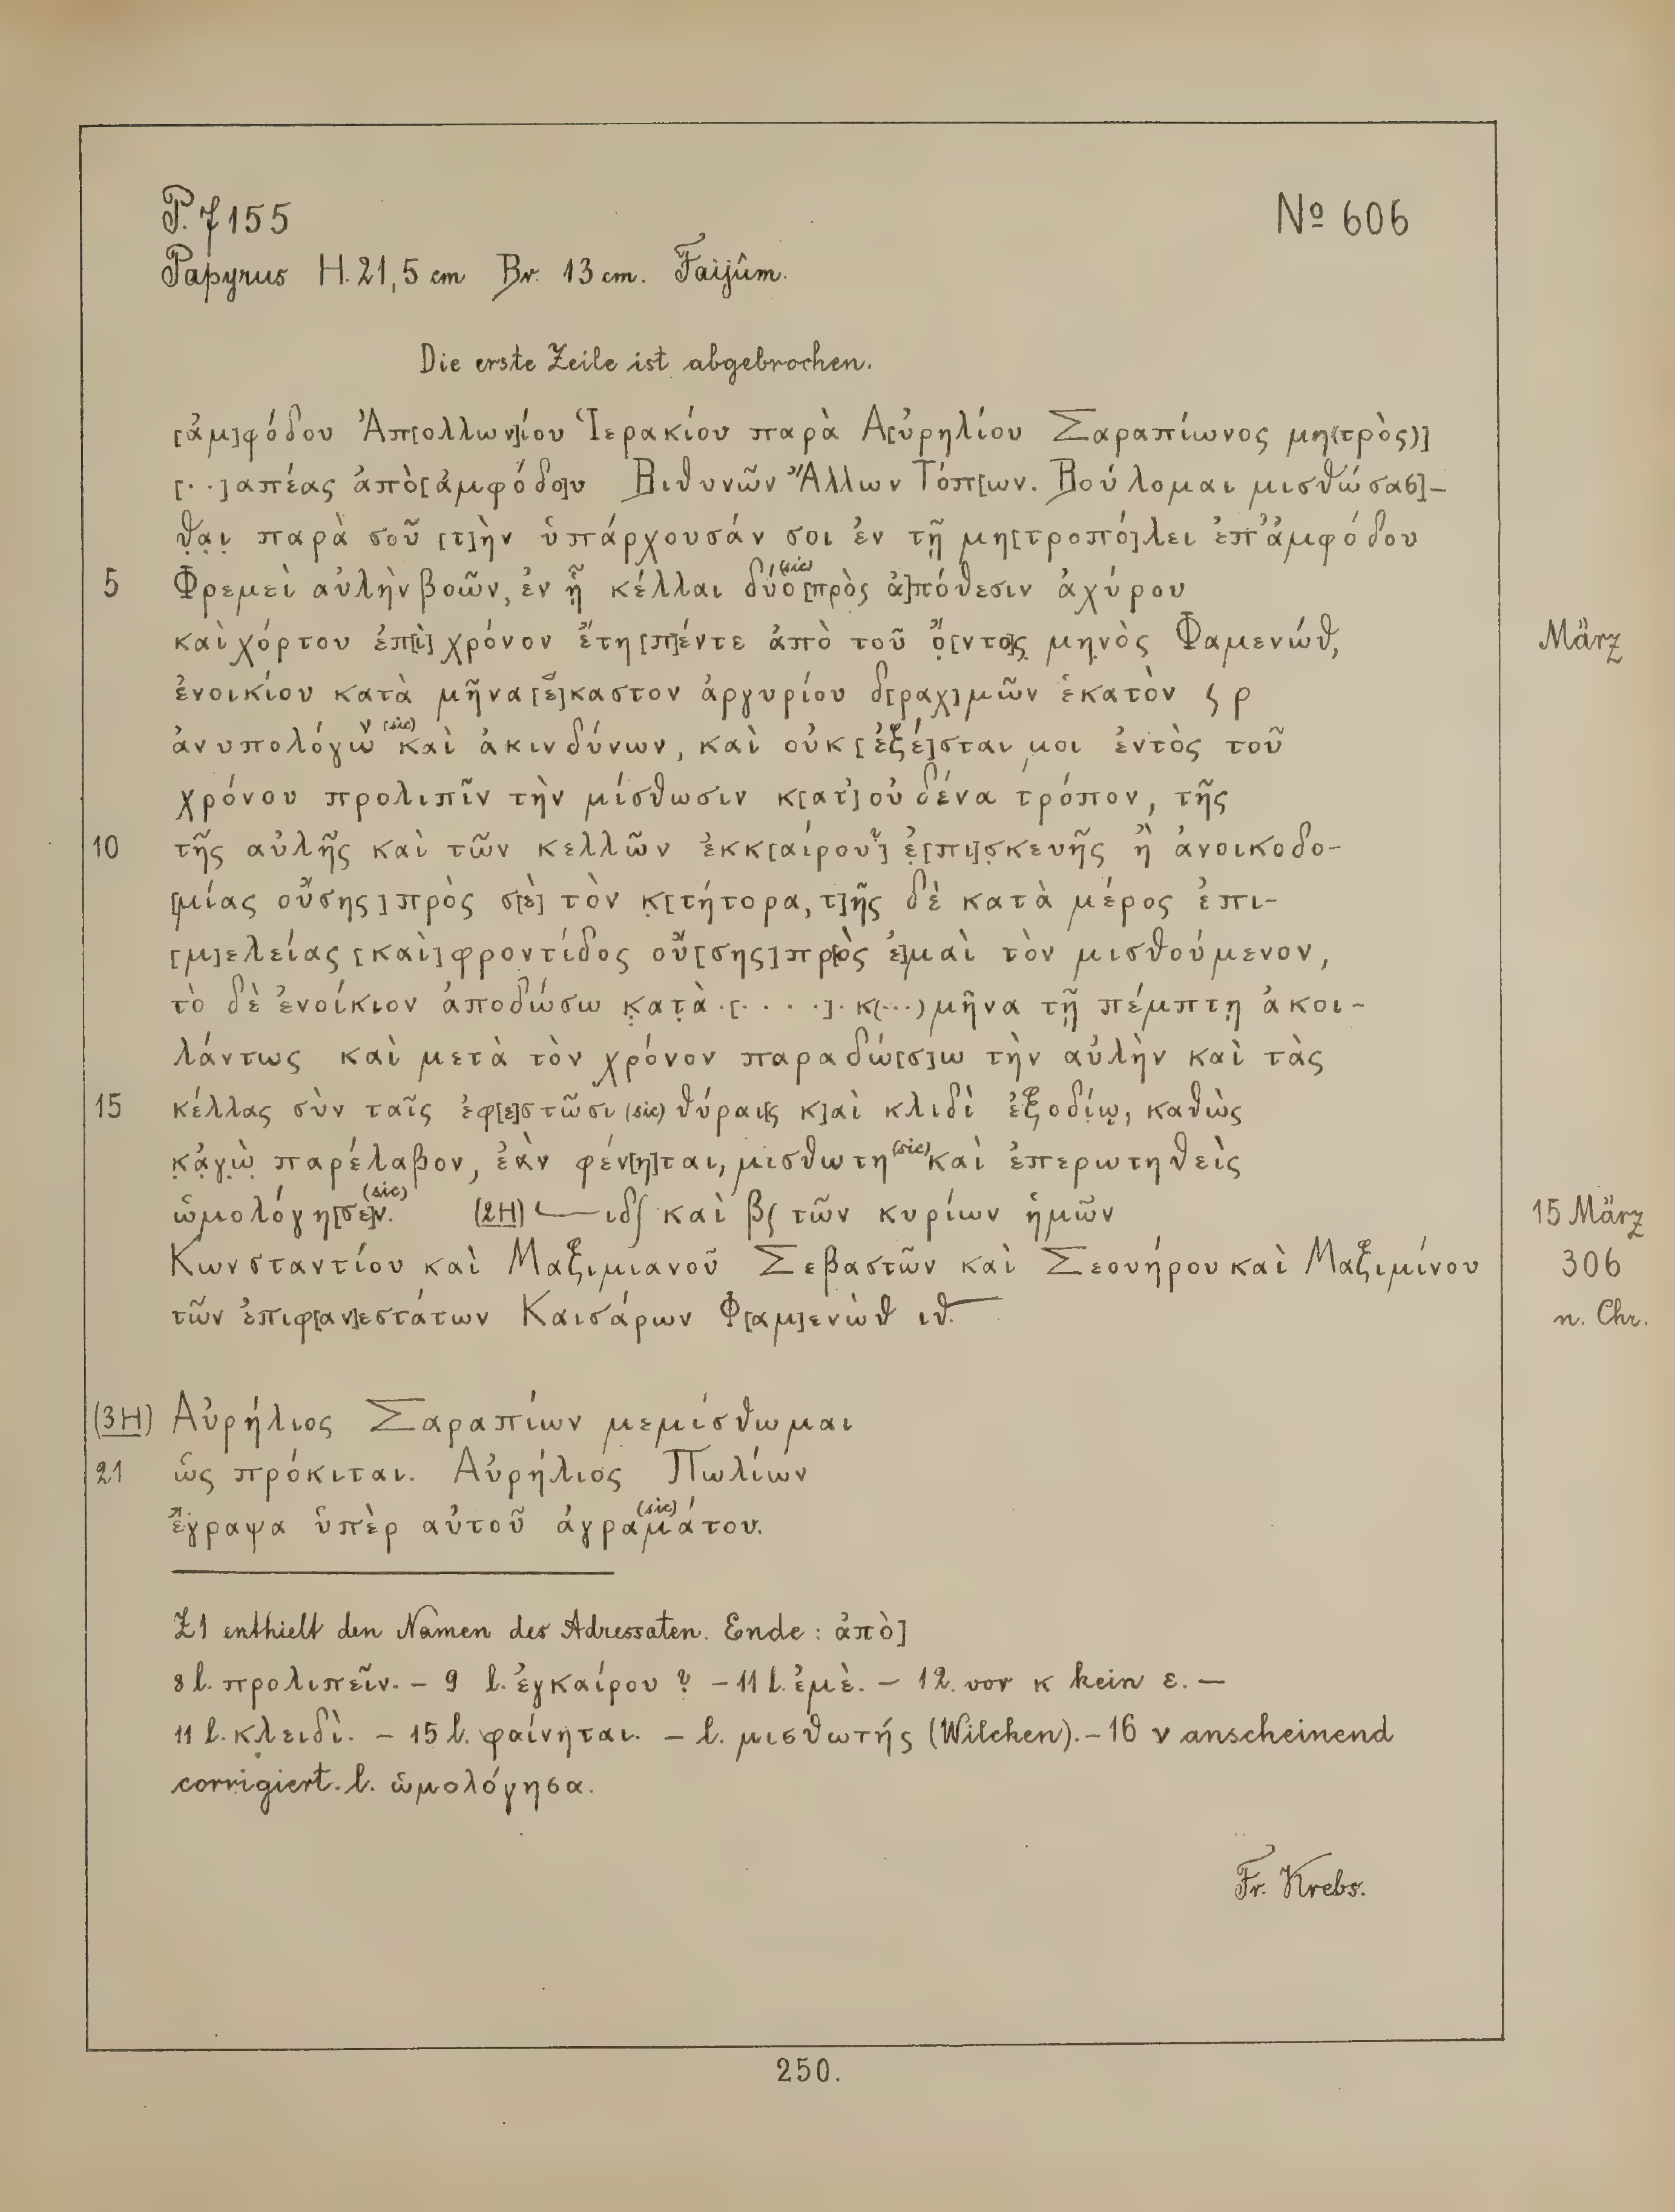 P. 7155
№ 606
Papyrus H. 21,5 cm Br. 13 cm. Faijûm.
Die erste Zeile ist abgebrochen.
[ἀμ]φόδου Ἀπ[ολλων]ίου Ἱερακίου παρὰ Α[ὐρηλίου Σαραπίωνος μη(τρὸς)]
[··]απέας ἀπὸ[ἀμφόδο]υ Βιθυνῶν Ἄλλων Τόπ[ων. Βούλομαι μισθώσασ]-
θ̣α̣ι̣ παρὰ σοῦ [τ]ὴν ὑπάρχουσάν σοι ἐν τῇ μη[τροπό]λει ἐπ' ἀμφόδου
5 Φρεμεὶ αὐλὴν βοῶν, ἐν ᾗ κέλλαι δύο (sic) [πρὸς ἀ]πόθεσιν ἀχύρου
καὶ χόρτου ἐπ[ὶ] χρόνον ἔτη [π]έντε ἀπὸ τοῦ ὄ̣[ντο]ς̣ μη̣νὸς Φαμενώθ,
März
ἐνοικίου κατὰ μῆνα [ἕ]καστον ἀργυρίου δ[ραχ]μῶν ἑκατὸν ϛ ρ
ἀνυπολόγων (sic) καὶ ἀκινδύνων, καὶ οὐκ [ἐξέ]σται μοι ἐντὸς τοῦ
χρόνου προλιπῖν τὴν μίσθωσιν κ[ατ'] οὐδένα τρόπον, τῆς
10 τῆς αὐλῆς καὶ τῶν κελλῶν ἐκκ[αίρου?] ἐ̣[πι]σ̣κευῆς ἢ ἀνοικοδο-
[μίας οὔσης] πρὸς σ[ὲ] τὸν κ̣[τήτορα, τ]ῆς δὲ κατὰ μέρος ἐπι-
[μ]ελείας [καὶ] φροντίδος οὔ[σης] πρ[ὸ]ς ἐ]μαὶ τὸν μισθούμενον,
τὸ δὲ ἐνοίκιον ἀποδώσω κ̣ατ̣ὰ ·[· · · ·]· κ(···) μῆνα τῇ πέμπτῃ ἀκοι-
λάντως καὶ μετὰ τὸν χρόνον παραδώ[σ]ω τὴν αὐλὴν καὶ τὰς
15 κέλλας σὺν ταῖς ἐφ[ε]στῶσι (sic) θύραι[ς κ]αὶ κλιδὶ ἐξοδίῳ̣, καθὼς
κ̣ἀ̣γ̣ὼ̣ παρέλαβον, ἐὰν φέν[η]ται, μισθωτη (sic) καὶ ἐπερωτηθεὶς
ὡμολόγη[σε]ν. (sic) (2H) ιδ∫ καὶ β∫ τῶν κυρίων ἡμῶν
15 März
Κωνσταντίου καὶ Μαξιμιανοῦ Σεβαστῶν καὶ Σεουήρου καὶ Μαξιμίνου
306
τῶν ἐπιφ[αν]εστάτων Καισάρων Φ[αμ]ενὼθ ιθ.
n. Chr.
(3H) Αὐρήλιος Σαραπίων μεμίσθωμαι
21 ὡς πρόκιται. Αὐρήλιος Πωλίων
ἔγραψα ὑπὲρ αὐτοῦ ἀγραμάτου. (sic)
Z1 enthielt den Namen des Adressaten. Ende: ἀπὸ]
8 l. προλιπεῖν. – 9 l. ἐγκαίρου? – 11 l. ἐμὲ. – 12. vor κ kein ε. –
11 l. κλειδὶ. – 15 l. φαίνηται. – l. μισθωτής (Wilcken). – 16 ν anscheinend
corrigiert. l. ὡμολόγησα.
Fr. Krebs.
250.